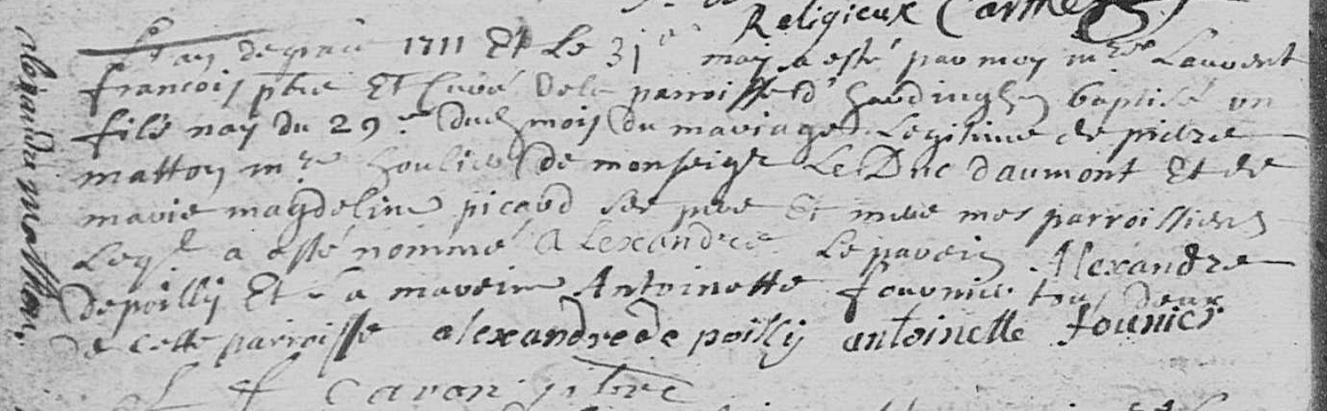 Religieux Carme
L'an de grace 1711 Et Le 31e may a esté par moy mre Laurent
francois ptre Et Curé de la parroisse d'hardinghen baptisé un
fils nay du 29e dud mois du mariage Legitime de pierre
matton mre houlier de monseigr Le Duc daumont Et de
marie magdeline picard ses pere Et mere mes parroissiens
Leql a esté nommé Alexandre Le parein Alexandre
depoilly Et La mareine Antoinette fournier tous deux
de cette parroisse alexandre de poilly antoinette founier
L f Caron ptre